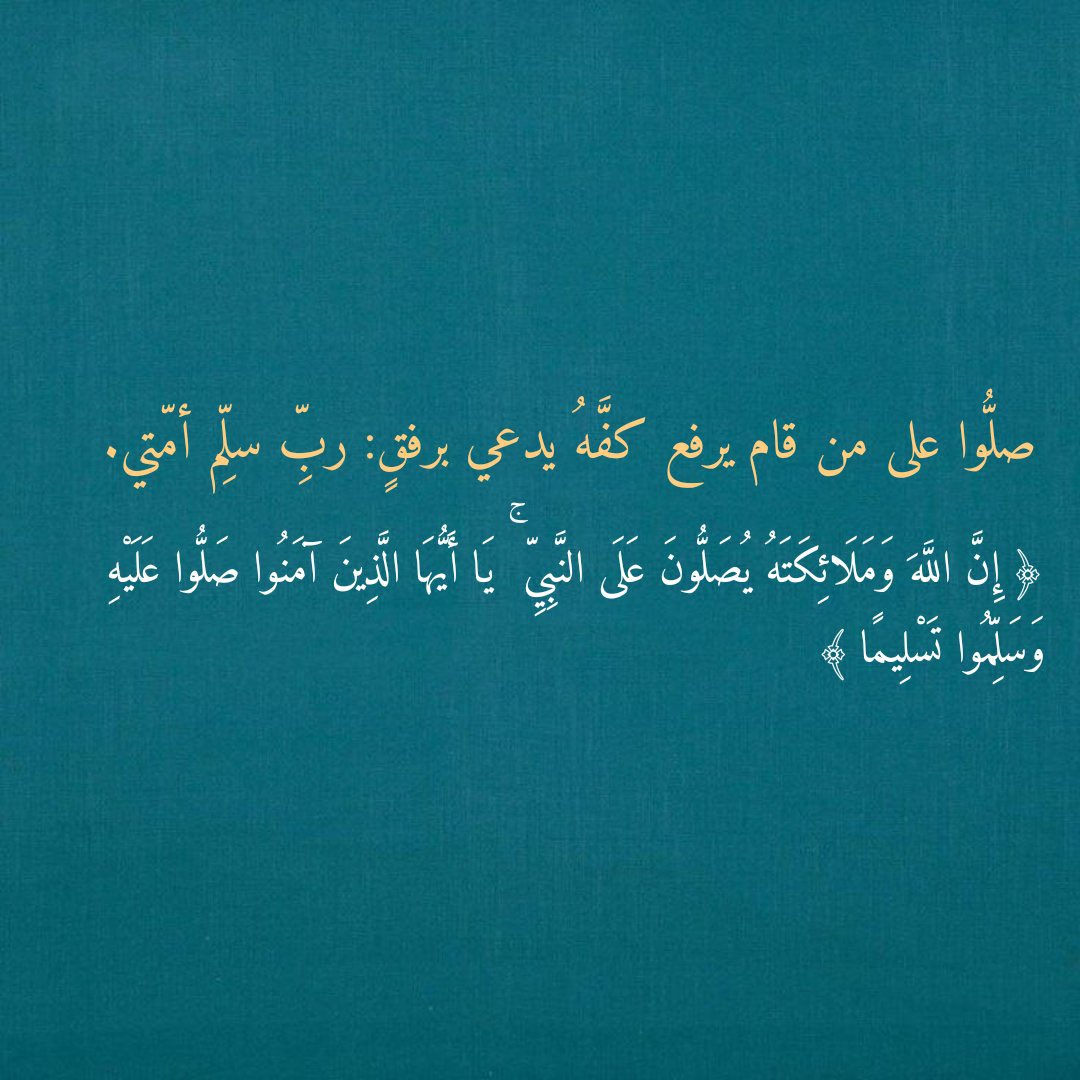 صلُّوا على من قام يرفع كفَّهُ يدعي برفقٍ: ربِّ سلِّم أمّتي.
﴿ إِنَّ اللَّهَ وَمَلَائِكَتَهُ يُصَلُّونَ عَلَى النَّبِيِّ ۚ يَا أَيُّهَا الَّذِينَ آمَنُوا صَلُّوا عَلَيْهِ
وَسَلِّمُوا تَسْلِيمًا ﴾